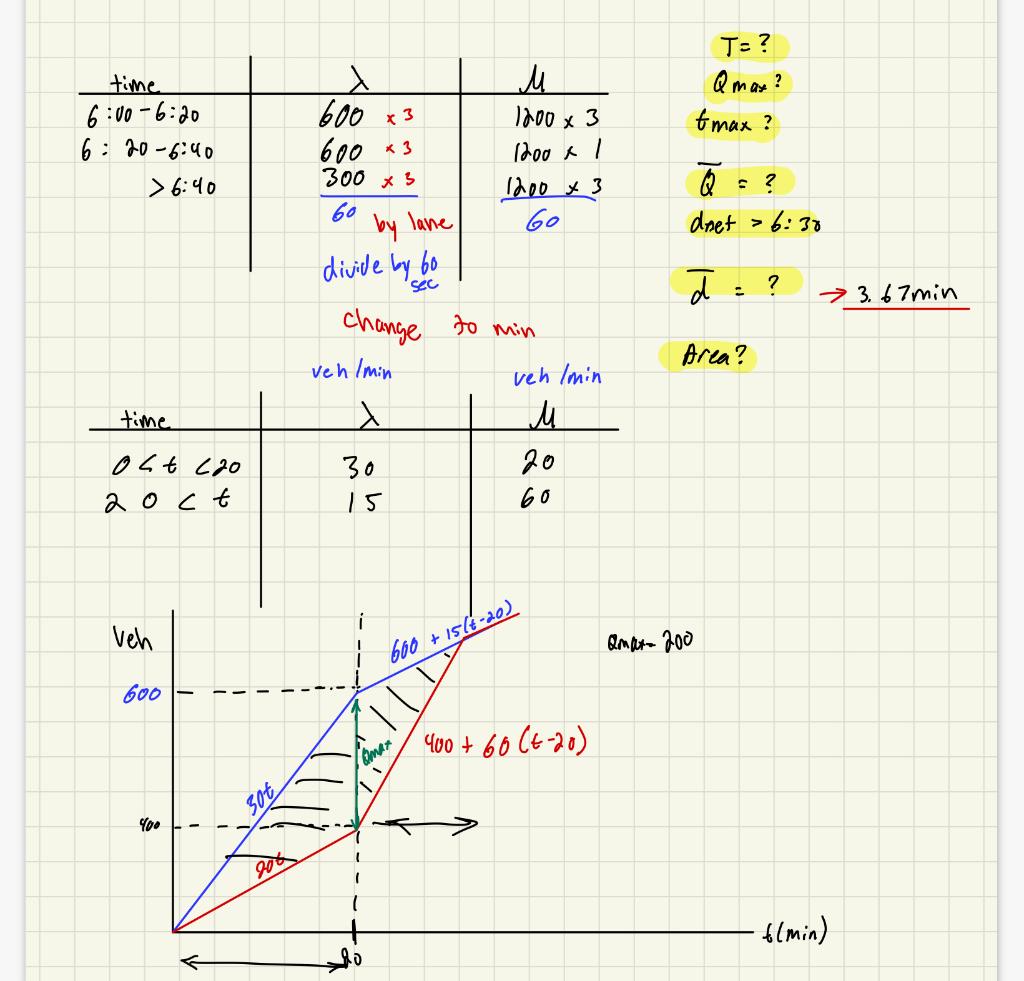 time λ μ
6:00-6:20 600 x 3 1200 x 3
6: 20-6:40 600 x 3 1200 x 1
>6:40 300 x 3 1200 x 3
60 by lane 60
divide by 60
sec
Change to min
T=?
Qmax?
tmax?
Q̅ = ?
dnet > 6:30
d̅ = ? → 3.67min
Area?
veh/min veh/min
time λ μ
0<t<20 30 20
20<t 15 60
Veh
600 + 15(t-20)
Qmax= 200
600
Qmax
400 + 60(t-20)
30t
400
20t
t(min)
20